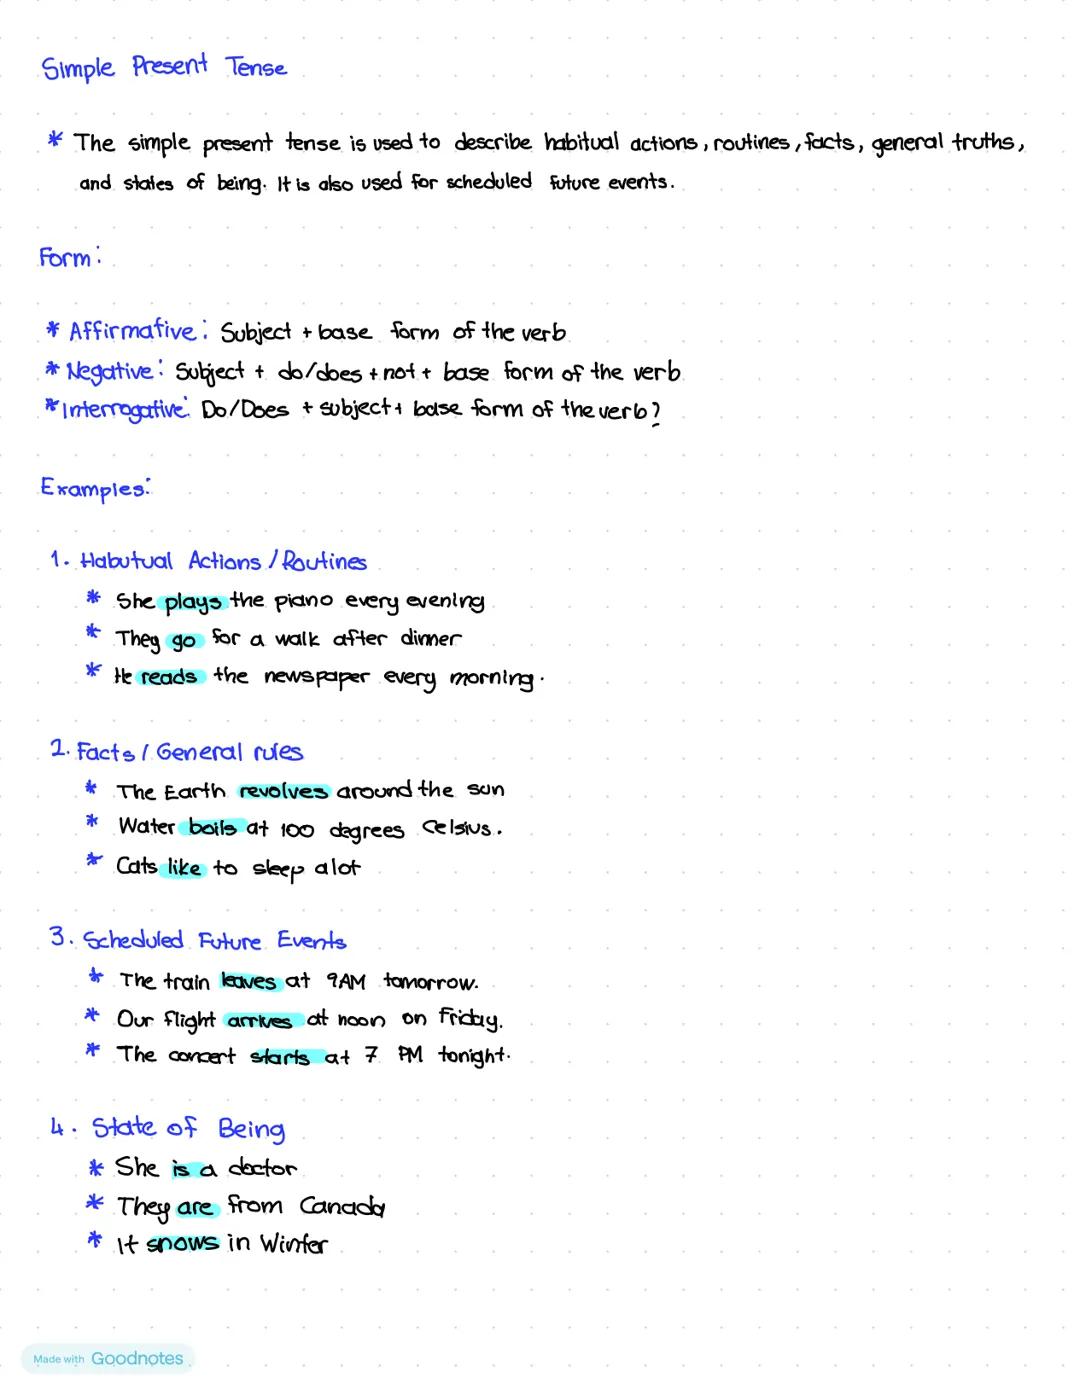 Simple Present Tense
* The simple present tense is used to describe habitual actions, routines, facts, general truths,
and states of being. It is also used for scheduled future events.
Form:
* Affirmative: Subject + base form of the verb
* Negative: Subject + do/does + not + base form of the verb
* Interrogative: Do/Does + subject + base form of the verb?
Examples:
1. Habutual Actions / Routines
* She plays the piano every evening
* They go for a walk after dinner
* He reads the newspaper every morning.
2. Facts / General rules
* The Earth revolves around the sun
* Water boils at 100 degrees Celsius.
* Cats like to sleep a lot
3. Scheduled Future Events
* The train leaves at 9AM tomorrow.
* Our flight arrives at noon on Friday.
* The concert starts at 7 PM tonight.
4. State of Being
* She is a doctor
* They are from Canada
* It snows in Winter
Made with Goodnotes